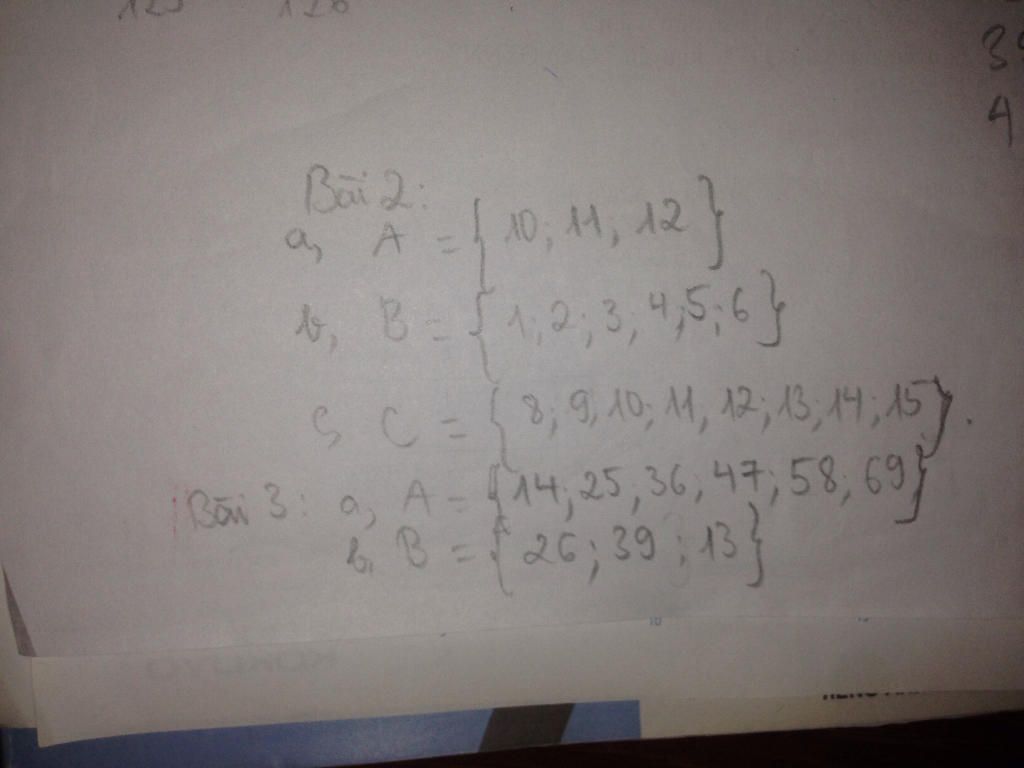 125 126
39
4
Bài 2:
a, A = { 10; 11; 12 }
b, B = { 1; 2; 3; 4; 5; 6 }
c, C = { 8; 9, 10; 11, 12; 13, 14; 15 }.
Bài 3: a, A = { 14; 25; 36; 47; 58; 69 }
b, B = { 26; 39; 13 }